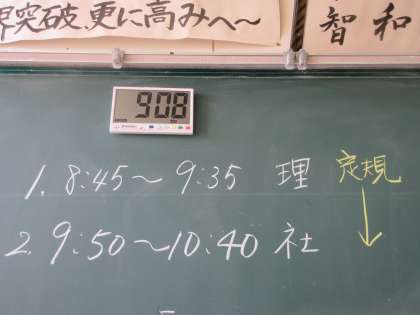 界突破、更に高みへ〜
智和
908
1. 8:45〜9:35 理 定規
2. 9:50〜10:40 社